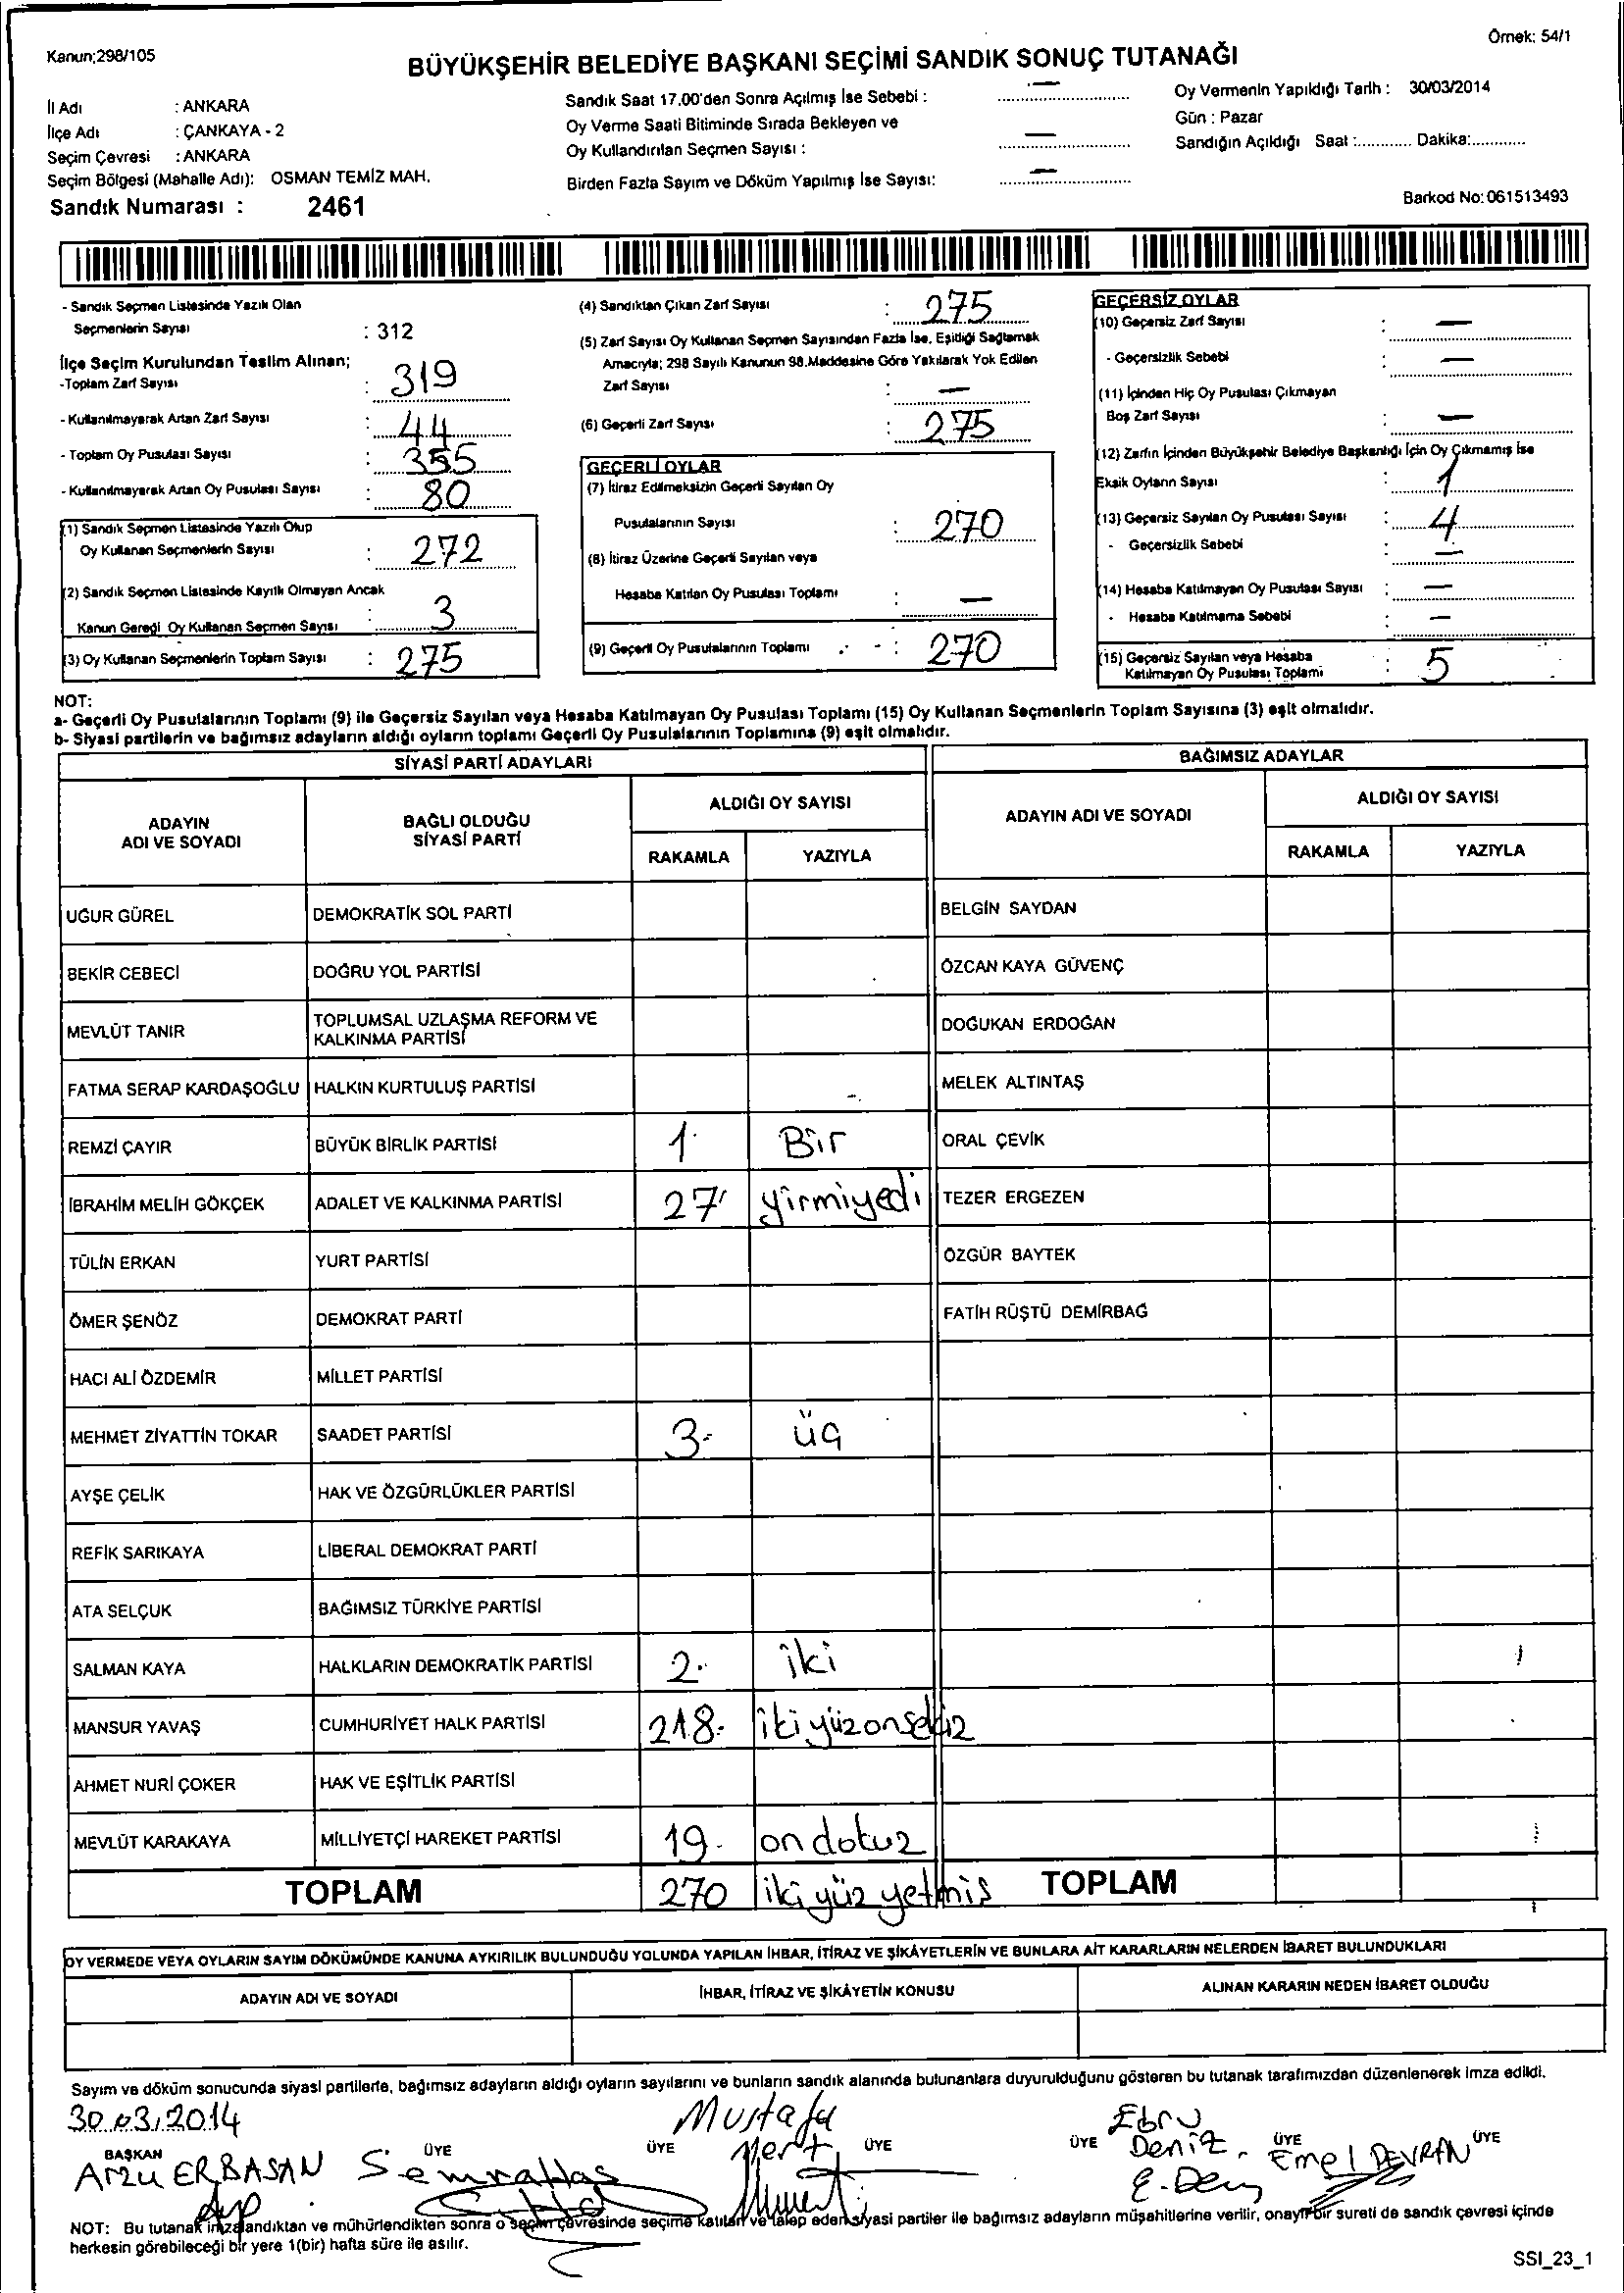 Kanun;298/105
Örnek: 54/1
BÜYÜKŞEHİR BELEDİYE BAŞKANI SEÇİMİ SANDIK SONUÇ TUTANAĞI
İl Adı : ANKARA
İlçe Adı : ÇANKAYA - 2
Seçim Çevresi : ANKARA
Seçim Bölgesi (Mahalle Adı): OSMAN TEMİZ MAH.
Sandık Numarası : 2461
Sandık Saat 17.00'den Sonra Açılmış İse Sebebi : —
Oy Verme Saati Bitiminde Sırada Bekleyen ve
Oy Kullandırılan Seçmen Sayısı : —
Birden Fazla Sayım ve Döküm Yapılmış İse Sayısı: —
Oy Vermenin Yapıldığı Tarih : 30/03/2014
Gün : Pazar
Sandığın Açıldığı Saat :............ Dakika:............
Barkod No: 061513493
- Sandık Seçmen Listesinde Yazılı Olan
Seçmenlerin Sayısı : 312
İlçe Seçim Kurulundan Teslim Alınan;
-Toplam Zarf Sayısı : 319
- Kullanılmayarak Artan Zarf Sayısı : 44
- Toplam Oy Pusulası Sayısı : 355
- Kullanılmayarak Artan Oy Pusulası Sayısı : 80
(1) Sandık Seçmen Listesinde Yazılı Olup
Oy Kullanan Seçmenlerin Sayısı : 272
(2) Sandık Seçmen Listesinde Kayıtlı Olmayan Ancak
Kanun Gereği Oy Kullanan Seçmen Sayısı : 3
(3) Oy Kullanan Seçmenlerin Toplam Sayısı : 275
(4) Sandıktan Çıkan Zarf Sayısı : 275
(5) Zarf Sayısı Oy Kullanan Seçmen Sayısından Fazla İse, Eşitliği Sağlamak
Amacıyla; 298 Sayılı Kanunun 98.Maddesine Göre Yakılarak Yok Edilen
Zarf Sayısı : —
(6) Geçerli Zarf Sayısı : 275
GEÇERLİ OYLAR
(7) İtiraz Edilmeksizin Geçerli Sayılan Oy
Pusulalarının Sayısı : 270
(8) İtiraz Üzerine Geçerli Sayılan veya
Hesaba Katılan Oy Pusulası Toplamı : —
(9) Geçerli Oy Pusulalarının Toplamı : 270
GEÇERSİZ OYLAR
(10) Geçersiz Zarf Sayısı : —
- Geçersizlik Sebebi : —
(11) İçinden Hiç Oy Pusulası Çıkmayan
Boş Zarf Sayısı : —
(12) Zarfın İçinden Büyükşehir Belediye Başkanlığı İçin Oy Çıkmamış İse
Eksik Oyların Sayısı : 1
(13) Geçersiz Sayılan Oy Pusulası Sayısı : 4
- Geçersizlik Sebebi : —
(14) Hesaba Katılmayan Oy Pusulası Sayısı : —
- Hesaba Katılmama Sebebi : —
(15) Geçersiz Sayılan veya Hesaba
Katılmayan Oy Pusulası Toplamı : 5
NOT:
a- Geçerli Oy Pusulalarının Toplamı (9) ile Geçersiz Sayılan veya Hesaba Katılmayan Oy Pusulası Toplamı (15) Oy Kullanan Seçmenlerin Toplam Sayısına (3) eşit olmalıdır.
b- Siyasi partilerin ve bağımsız adayların aldığı oyların toplamı Geçerli Oy Pusulalarının Toplamına (9) eşit olmalıdır.
SİYASİ PARTİ ADAYLARI
BAĞIMSIZ ADAYLAR
ADAYIN
ADI VE SOYADI
BAĞLI OLDUĞU
SİYASİ PARTİ
ALDIĞI OY SAYISI
RAKAMLA YAZIYLA
ADAYIN ADI VE SOYADI
ALDIĞI OY SAYISI
RAKAMLA YAZIYLA
UĞUR GÜREL DEMOKRATİK SOL PARTİ BELGİN SAYDAN
BEKİR CEBECİ DOĞRU YOL PARTİSİ ÖZCAN KAYA GÜVENÇ
MEVLÜT TANIR TOPLUMSAL UZLAŞMA REFORM VE
KALKINMA PARTİSİ DOĞUKAN ERDOĞAN
FATMA SERAP KARDAŞOĞLU HALKIN KURTULUŞ PARTİSİ MELEK ALTINTAŞ
REMZİ ÇAYIR BÜYÜK BİRLİK PARTİSİ 1 Bir ORAL ÇEVİK
İBRAHİM MELİH GÖKÇEK ADALET VE KALKINMA PARTİSİ 27 yirmiyedi TEZER ERGEZEN
TÜLİN ERKAN YURT PARTİSİ ÖZGÜR BAYTEK
ÖMER ŞENÖZ DEMOKRAT PARTİ FATİH RÜŞTÜ DEMİRBAĞ
HACI ALİ ÖZDEMİR MİLLET PARTİSİ
MEHMET ZİYATTİN TOKAR SAADET PARTİSİ 3 üç
AYŞE ÇELİK HAK VE ÖZGÜRLÜKLER PARTİSİ
REFİK SARIKAYA LİBERAL DEMOKRAT PARTİ
ATA SELÇUK BAĞIMSIZ TÜRKİYE PARTİSİ
SALMAN KAYA HALKLARIN DEMOKRATİK PARTİSİ 2 iki
MANSUR YAVAŞ CUMHURİYET HALK PARTİSİ 218 ikiyüzonsekiz
AHMET NURİ ÇOKER HAK VE EŞİTLİK PARTİSİ
MEVLÜT KARAKAYA MİLLİYETÇİ HAREKET PARTİSİ 19 ondokuz
TOPLAM 270 ikiyüz yetmiş TOPLAM
OY VERMEDE VEYA OYLARIN SAYIM DÖKÜMÜNDE KANUNA AYKIRILIK BULUNDUĞU YOLUNDA YAPILAN İHBAR, İTİRAZ VE ŞİKÂYETLERİN VE BUNLARA AİT KARARLARIN NELERDEN İBARET BULUNDUKLARI
ADAYIN ADI VE SOYADI İHBAR, İTİRAZ VE ŞİKÂYETİN KONUSU ALINAN KARARIN NEDEN İBARET OLDUĞU
Sayım ve döküm sonucunda siyasi partilerle, bağımsız adayların aldığı oyların sayılarını ve bunların sandık alanında bulunanlara duyurulduğunu gösteren bu tutanak tarafımızdan düzenlenerek imza edildi.
30.03.2014
BAŞKAN ÜYE ÜYE ÜYE ÜYE ÜYE ÜYE
Arzu ERBASAN
Mustafa
Mert
Ebru
Deniz
Emel DEVRAN
NOT: Bu tutanak imzalandıktan ve mühürlendikten sonra o seçim çevresinde seçime katılan ve talep eden siyasi partiler ile bağımsız adayların müşahitlerine verilir, onaylı bir sureti de sandık çevresi içinde
herkesin görebileceği bir yere 1(bir) hafta süre ile asılır.
SSI_23_1